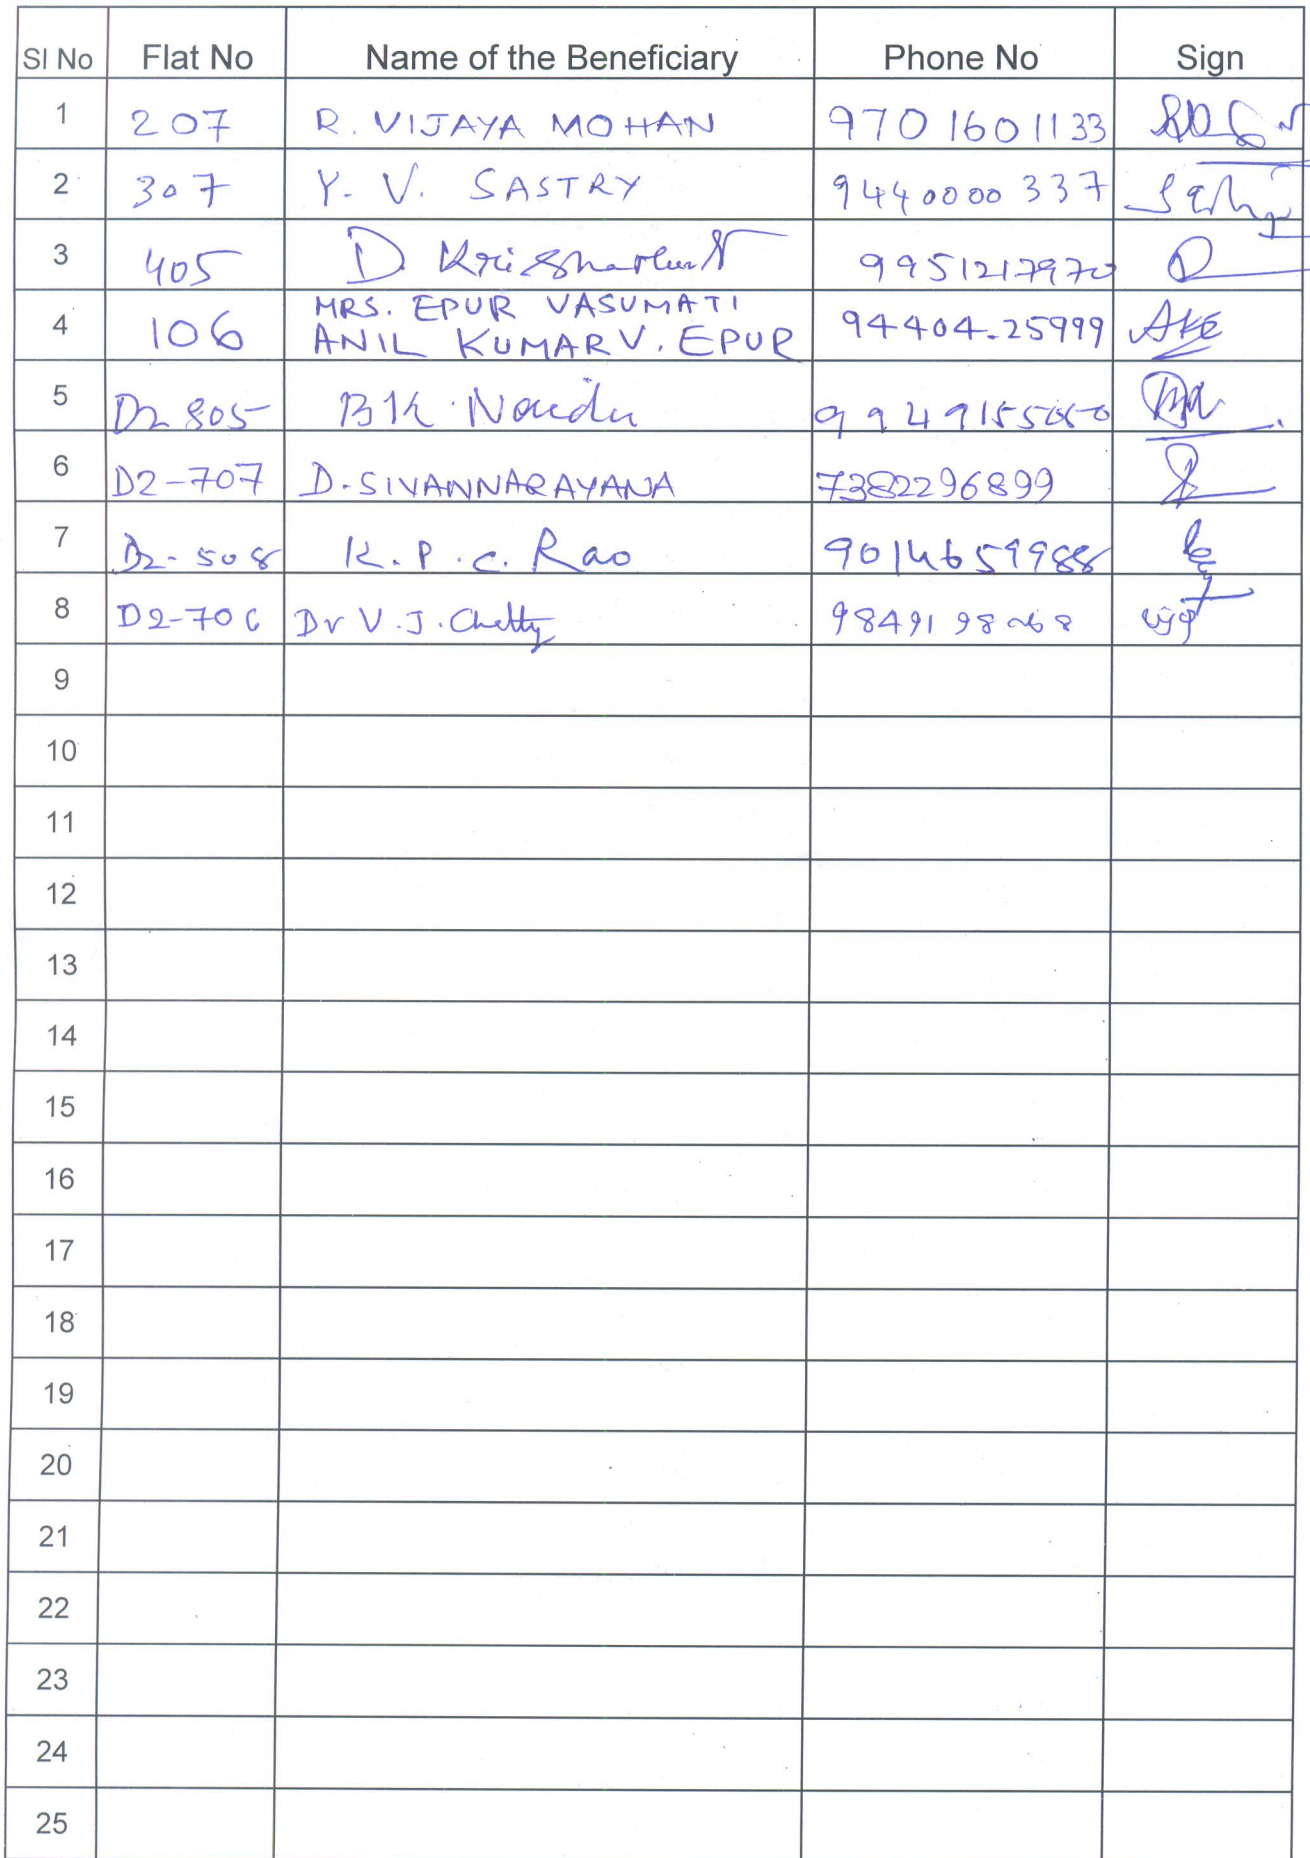 Sl No Flat No Name of the Beneficiary Phone No Sign
1 207 R. VIJAYA MOHAN 9701601133
2 307 Y. V. SASTRY 9440000337
3 405 D 9951217970
4 106 MRS. EPUR VASUMATI
ANIL KUMAR V. EPUR 94404-25999 AKE
5 D2 805 BK. Naidu
6 D2-707 D. SIVANNARAYANA 7382296899
7 D2-508 K. P. C. Rao 9014659988
8 D2-706 Dr V. J. Chetty
9
10
11
12
13
14
15
16
17
18
19
20
21
22
23
24
25